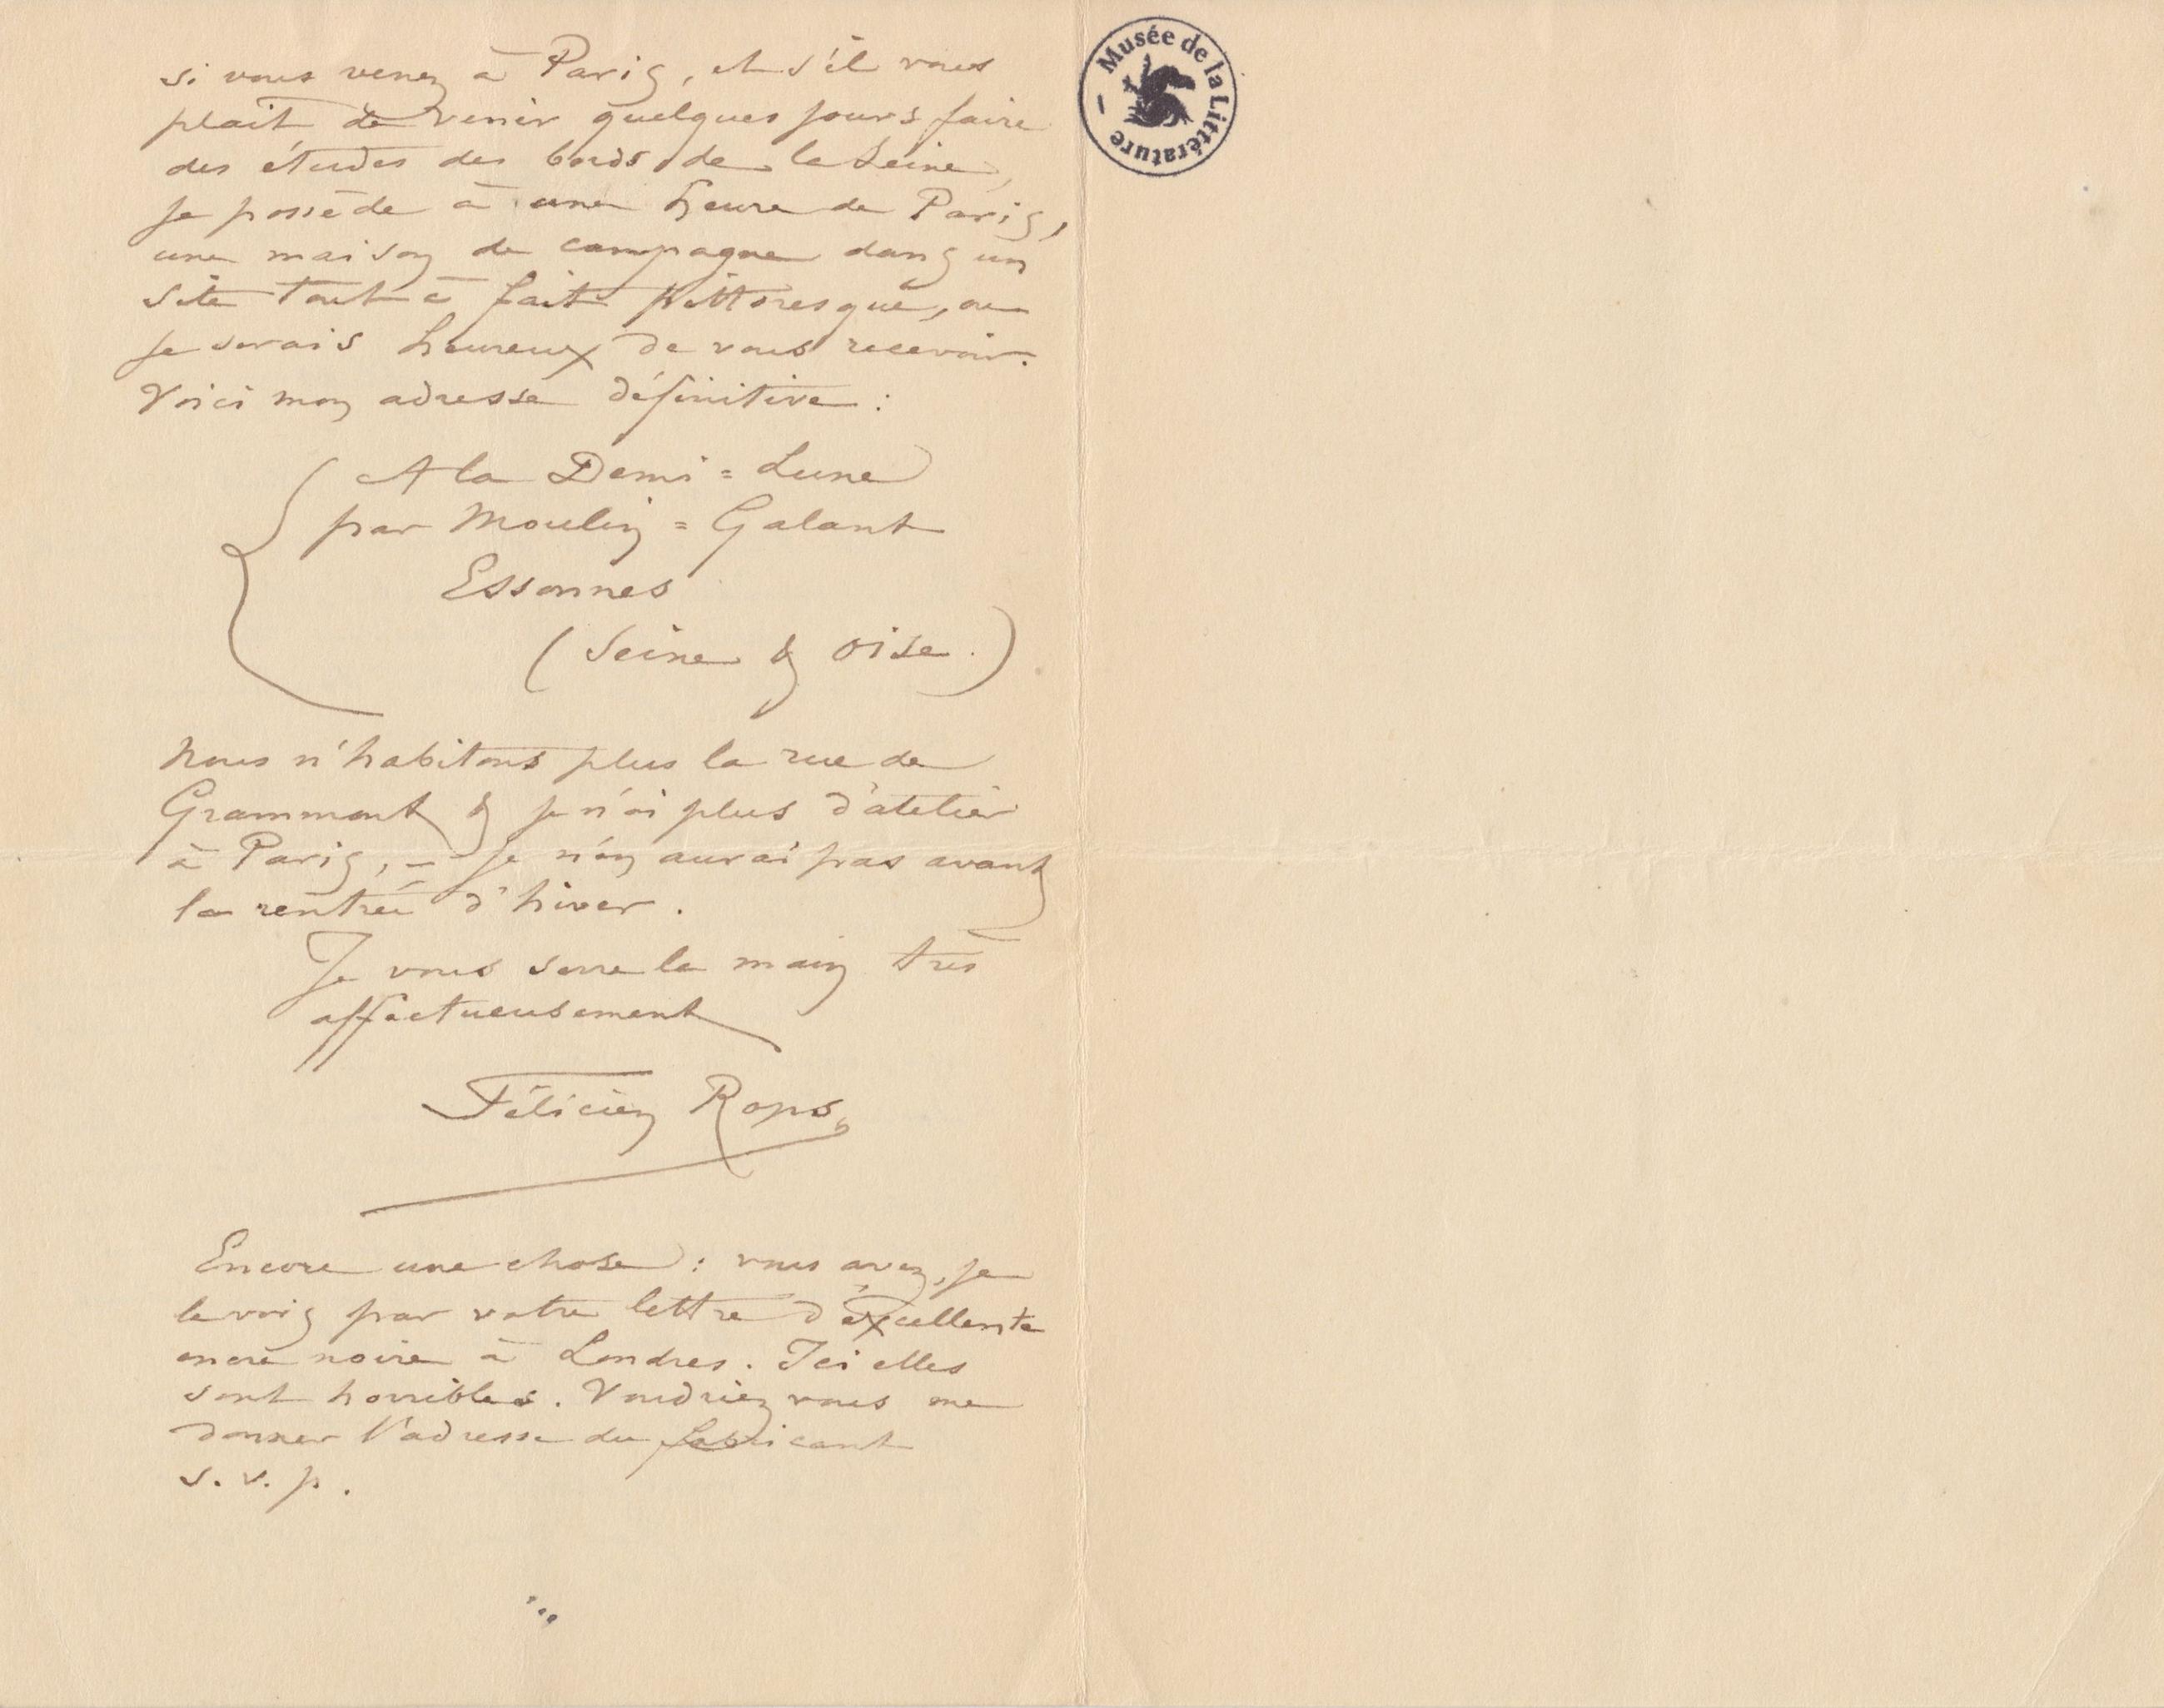 si vous venez à Paris, et s'il vous
plait de venir quelques jours faire
des études des bords de la Seine,
je possède à une heure de Paris,
une maison de campagne dans un
site tout à fait pittoresque, ou
je serais heureux de vous recevoir.
Voici mon adresse définitive :
A la Demi = Lune
par Moulin = Galant
Essonnes
(Seine & Oise.)
Nous n'habitons plus la rue de
Grammont & je n'ai plus d'atelier
à Paris, – je n'en aurai pas avant
la rentrée d'hiver.
Je vous serre la main très
affectueusement
Félicien Rops
Encore une chose : vous avez, je
le vois par votre lettre d'excellente
encre noire à Londres. Ici elles
sont horribles. Voudriez vous me
donner l'adresse du fabricant
s. v. p.
Musée de la Littérature –